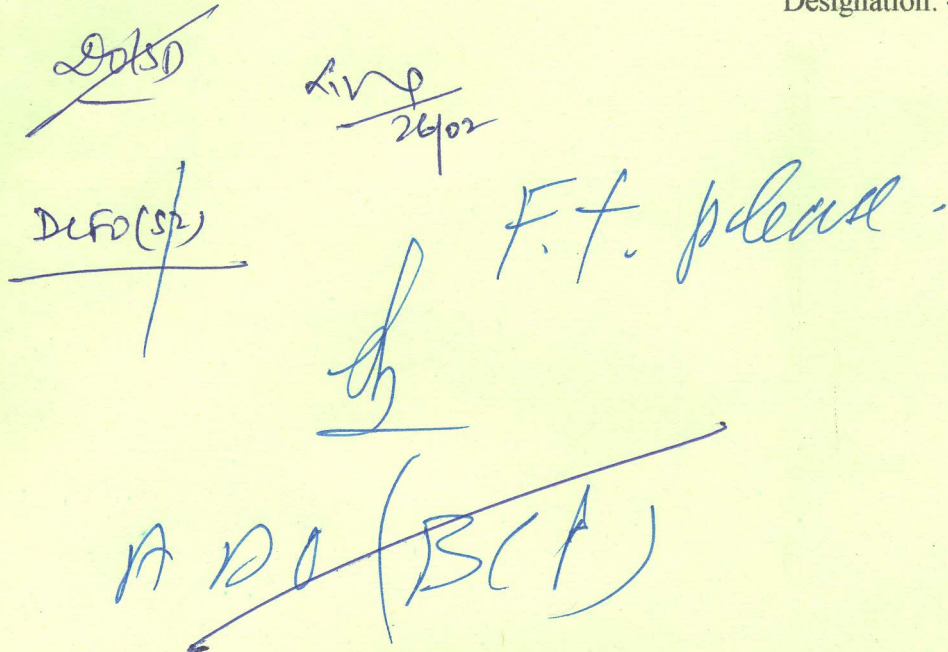 Designation:
DO/SD
26/02
DCFO(SR)
F.f. please.
ADO (BCP)